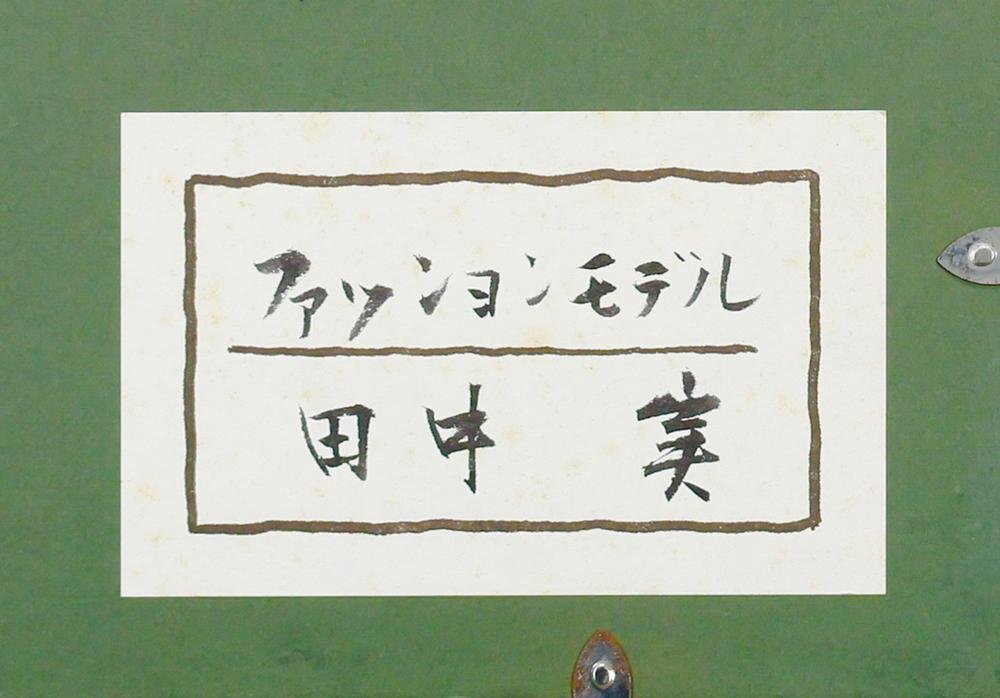 ファッションモデル
田中 実